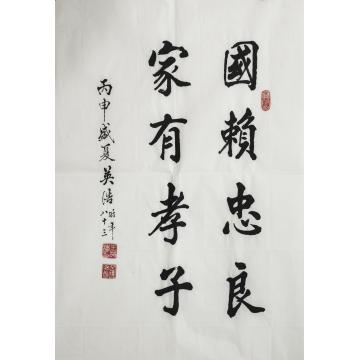 國賴忠良
家有孝子
丙申盛夏英浩時年八十三